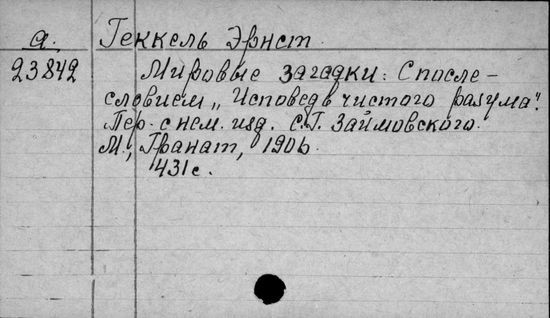 а. Геккель Эрнст.
23842 Мировые загадки: С после-
словием „Исповедь чистого разума".
Пер. с нем. изд. С.Г. Займовского.
М., Гранат, 1906.
431 с.